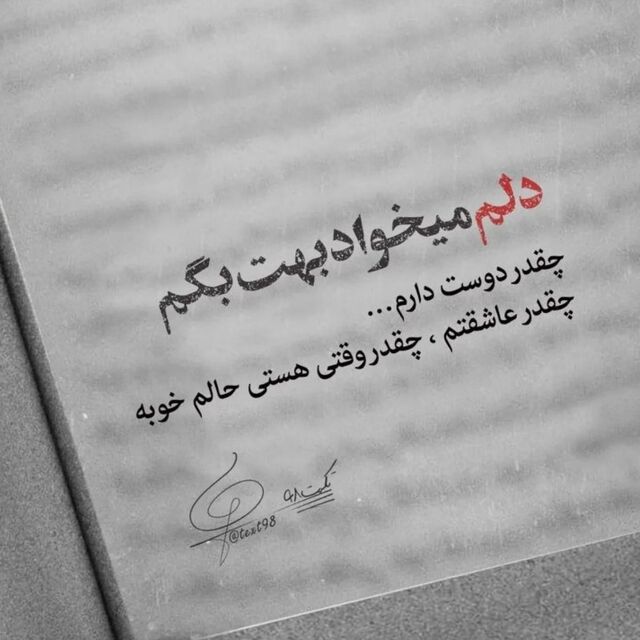 دلم میخواد بهت بگم
چقدر دوست دارم...
چقدر عاشقتم ، چقدر وقتی هستی حالم خوبه
تکست ۹۸
@text98